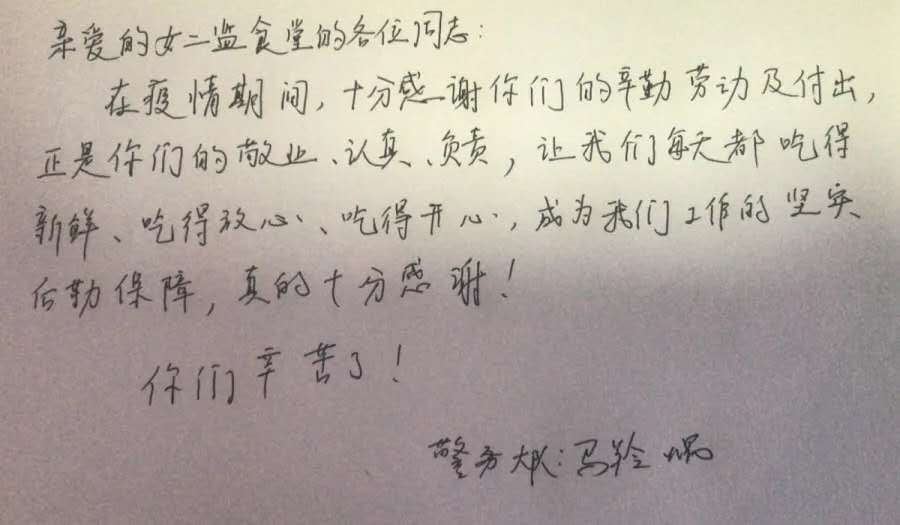 亲爱的女二监食堂的各位同志:
在疫情期间,十分感谢你们的辛勤劳动及付出,
正是你们的敬业、认真、负责,让我们每天都吃得
新鲜、吃得放心、吃得开心,成为我们工作的坚实
后勤保障,真的十分感谢!
你们辛苦了!
警务大队:马